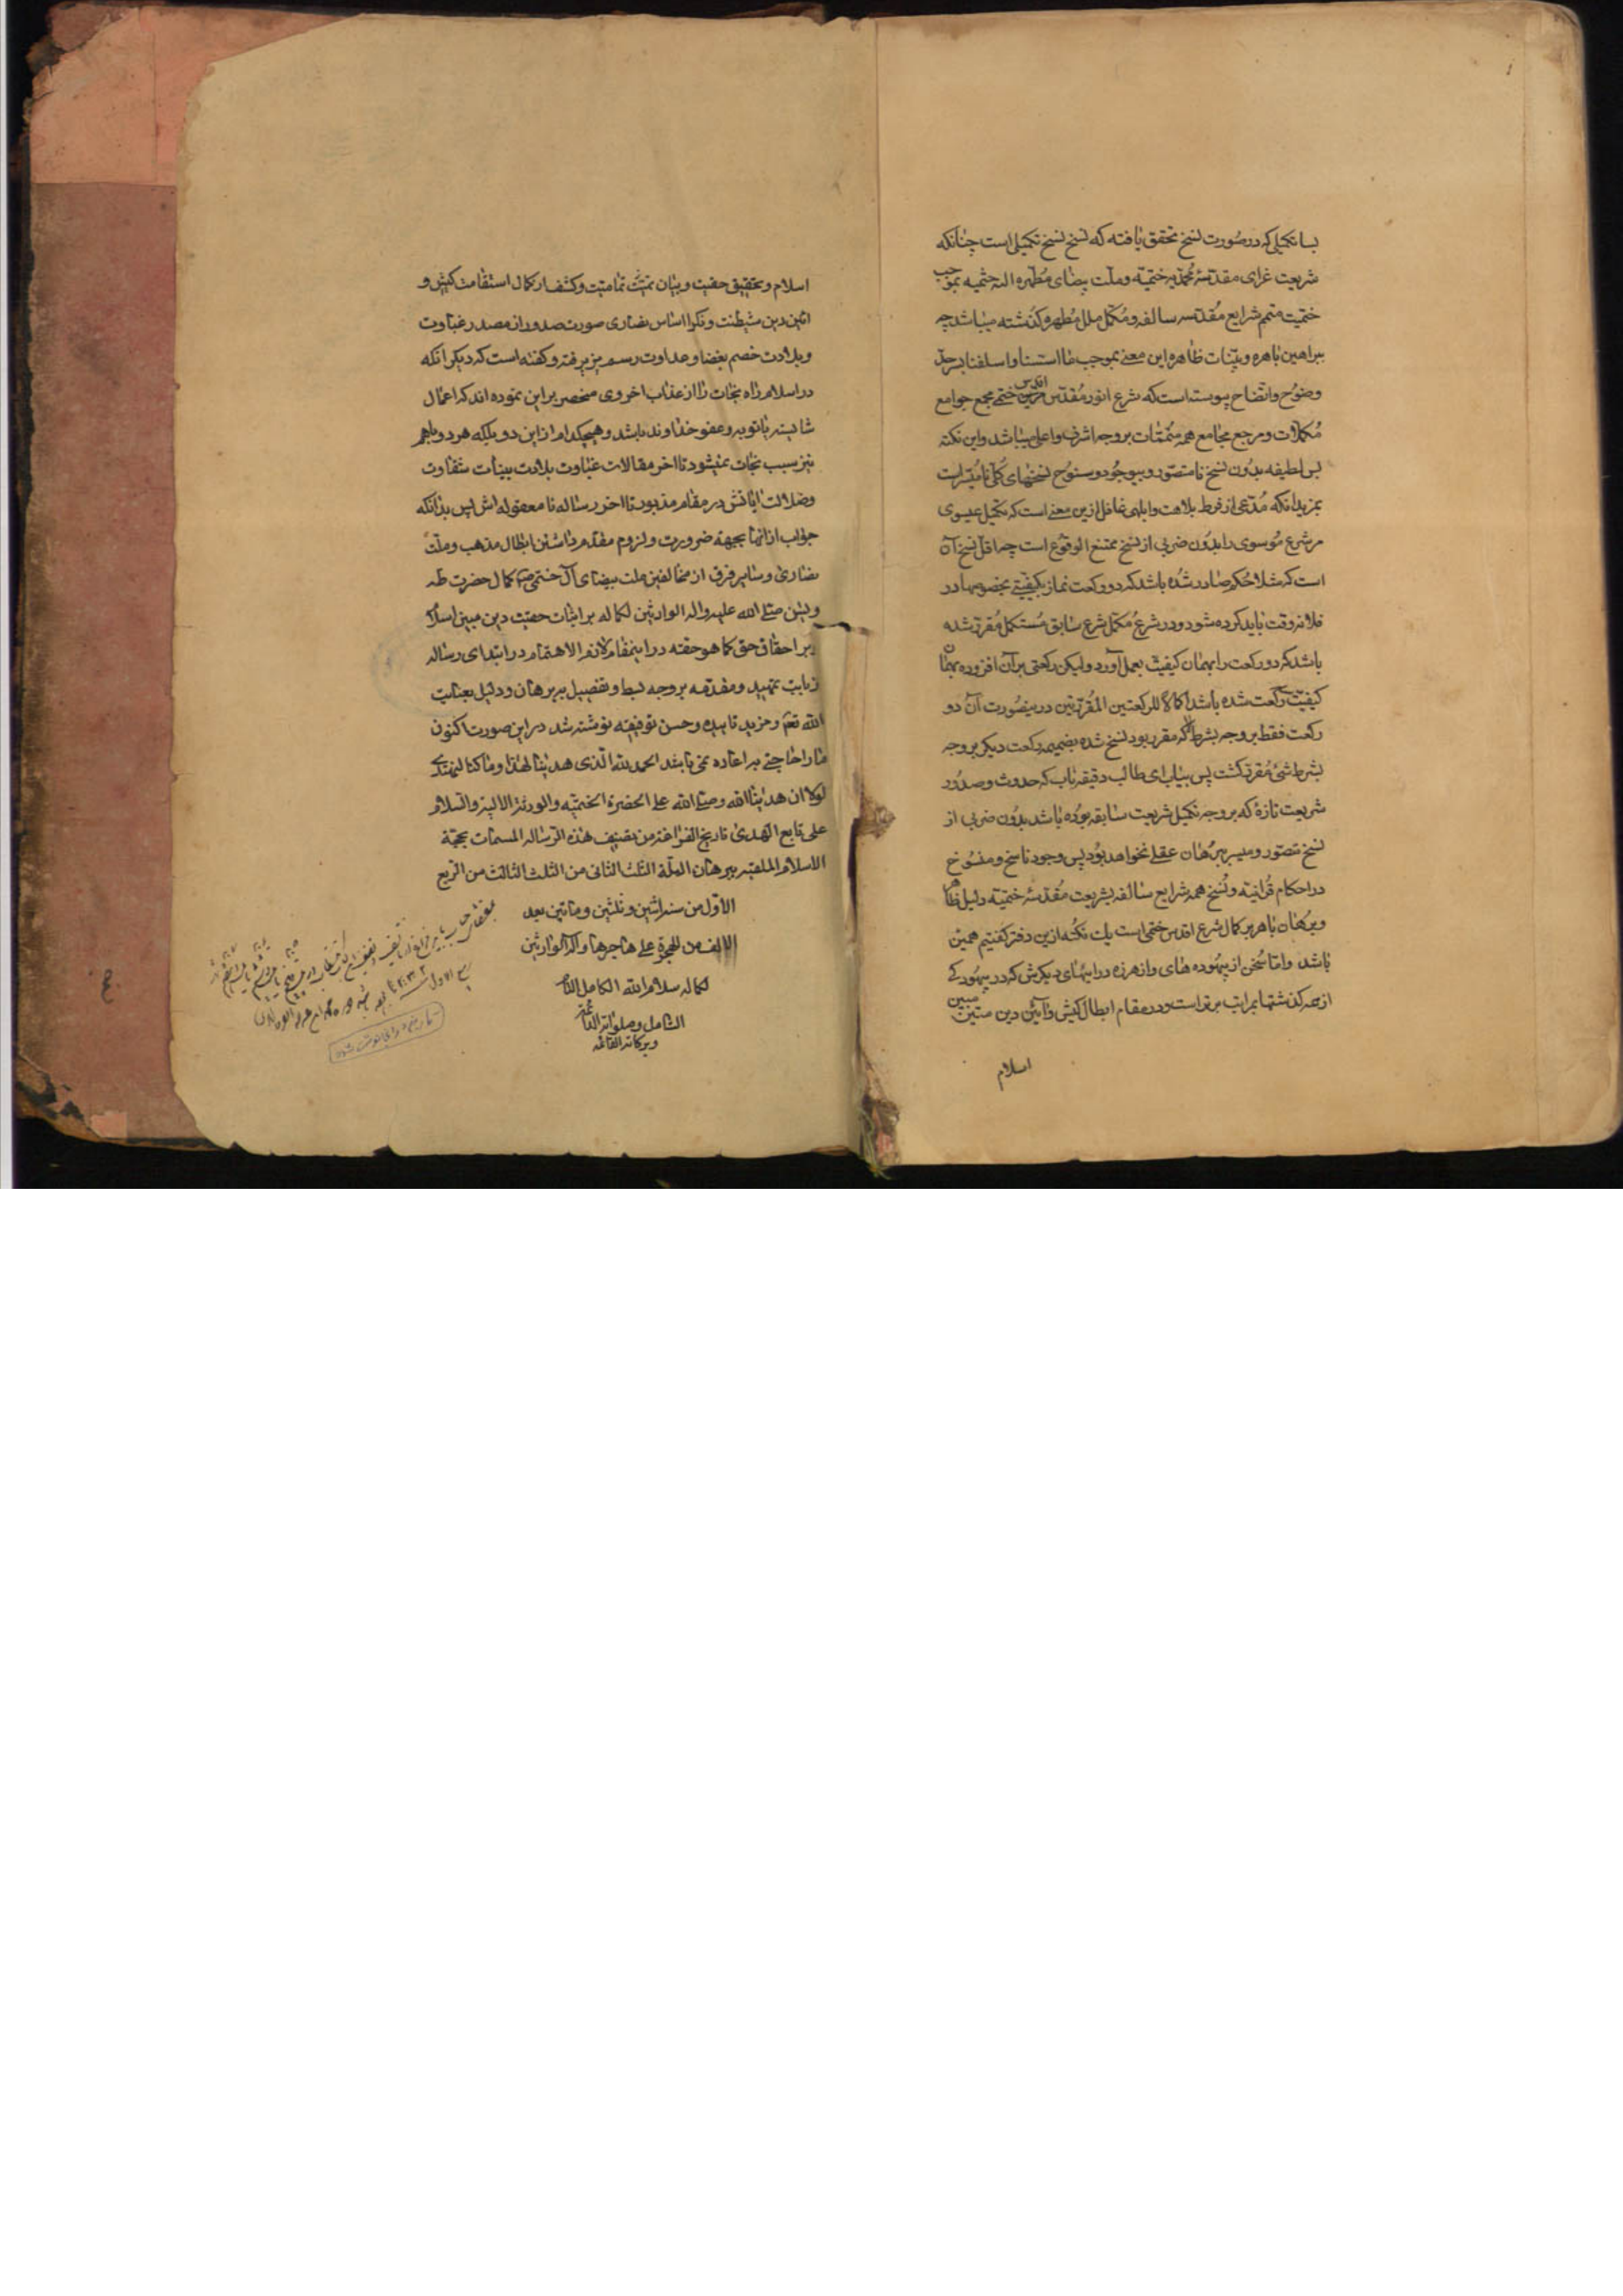 بسا تکمیلی که در صورت نسخ تحقق یافته که نسخ نسخ تکمیلی است چنانکه
شریعت غرای مقدسهٔ محمدیه ختمیه و ملت بیضای مطهره الٰه حشمیه بموجب
ختمیت متمم شرایع مقدسه سالفه و مکمل ملل مطهره گذشته میباشد چه
ببراهین باهره و بینات ظاهره این معنی بموجب ما اسسنا و اسلفنا بسرحد
وضوح و اتضاح پیوسته است که شرع انور مقدس اقدس ختمی مجمع جوامع
مکملات و مرجع مجامع همه متممات بروجه اشرف و اعلی میباشد و این نکته
بس لطیفه بدون نسخ نامتصور و بیوجود و سنوح نسخهای کلی نامیسر است
بمزید آنکه مدعی از فرط بلاهت و ابلهی غافل ازین معنی است که تکمیل عیسوی
مر شرع موسوی را بدون ضربی از نسخ ممتنع الوقوع است چه اقل نسخ آن
است که مثلا حکم صادر شده باشد که دو رکعت نماز بکیفیتی بخصوصها در
فلانه وقت باید کرده شود و در شرع مکمل شرع سابق مستکمل مقرر شده
باشد که دو رکعت را بهمان کیفیت بعمل آورد و لیکن رکعتی بر آن افزوده بهمان
کیفیت سه رکعت شده باشد اکمالا للرکعتین المقررتین درینصورت آن دو
رکعت فقط بروجه بشرط لا که مقرر بود نسخ شده بضمیمه رکعت دیگر بروجه
بشرط شیٔ مقرر گشت پس بیاب ای طالب دقیقه یاب که حدوث و صدور
شریعت تازهٔ که بروجه تکمیل شریعت سابقه بوده باشد بدون ضربی از
نسخ متصور و میسر ببرهان عقلی نخواهد بود پس وجود ناسخ و منسوخ
در احکام قرآنیه و نسخ همه شرایع سالفه بشریعت مقدسه ختمیه دلیل ظاهر
و برهان باهر بر کمال شرع اقدس ختمی است یک نکته ازین دفتر گفتیم همین
باشد و اما سخن از بیهوده های و از هرزه دراییهای دیگرش که در بیهودگی
از حد گذشتها بمراتب برتر است و در مقام ابطال کیش و آئین دین متین مبین
اسلام
اسلام و تحقیق حقیت و بیان تمامیت و کشف از کمال استقامت کیش و
آئین دین شیطنت و نکرا اساس نصاری صورت صدور از مصدر غباوت
و بلادت خصم بغضا و عداوت رسم پزیرفته و گفته است که دیگر آنکه
در اسلام راه نجات را از عذاب اخروی منحصر بر این نموده اند که اعمال
شایسته یا توبه و عفو خداوند باشد و هیچکدام از این دو بلکه هر دو باهم
نیز سبب نجات نمیشود تا آخر مقالات غباوت بلادت بینات شقاوت
و ضلالت ایاتش در مقام مذبور تا آخر رساله نا معقوله اش پس بدانکه
جواب از آنها بجهة ضرورت و لزوم مقدم داشتن ابطال مذهب و ملت
نصاری و سایر فرق از مخالفین ملت بیضای آل ختمی کمال حضرت طه
و یس صلی الله علیه و اله الوارثین لکماله بر اثبات حقیت دین مبین اسلام
و بر احقاق حق کما هو حقه در اینمقام لازم الاهتمام در ابتدای رساله
از بابت تمهید و مقدمه بروجه بسط و تفصیل ببرهان و دلیل بعنایت
الله تعم و مزید تأییده و حسن توفیقه نوشته شد در این صورت اکنون
ما را حاجتی به اعاده نمی باشد الحمد لله الذی هدینا لهذا و ما کنا لنهتدی
لولا ان هدینا الله و صلی الله علی الحضرة الختمیه و الورثة الالیه و السلام
علی تابع الهدی تاریخ الفراغة من تصنیف هذه الرساله المسمات بحجة
الاسلام الملقبه ببرهان الملة الثلث الثانی من الثلث الثالث من الربیع
الاول من سنه اثنین و ثلثین و ماتین بعد
الالف من الهجرة علی هاجرها و اله الوارثین
لکماله سلام الله الکامل التام
الشامل و صلواته التامة
و برکاته العامه